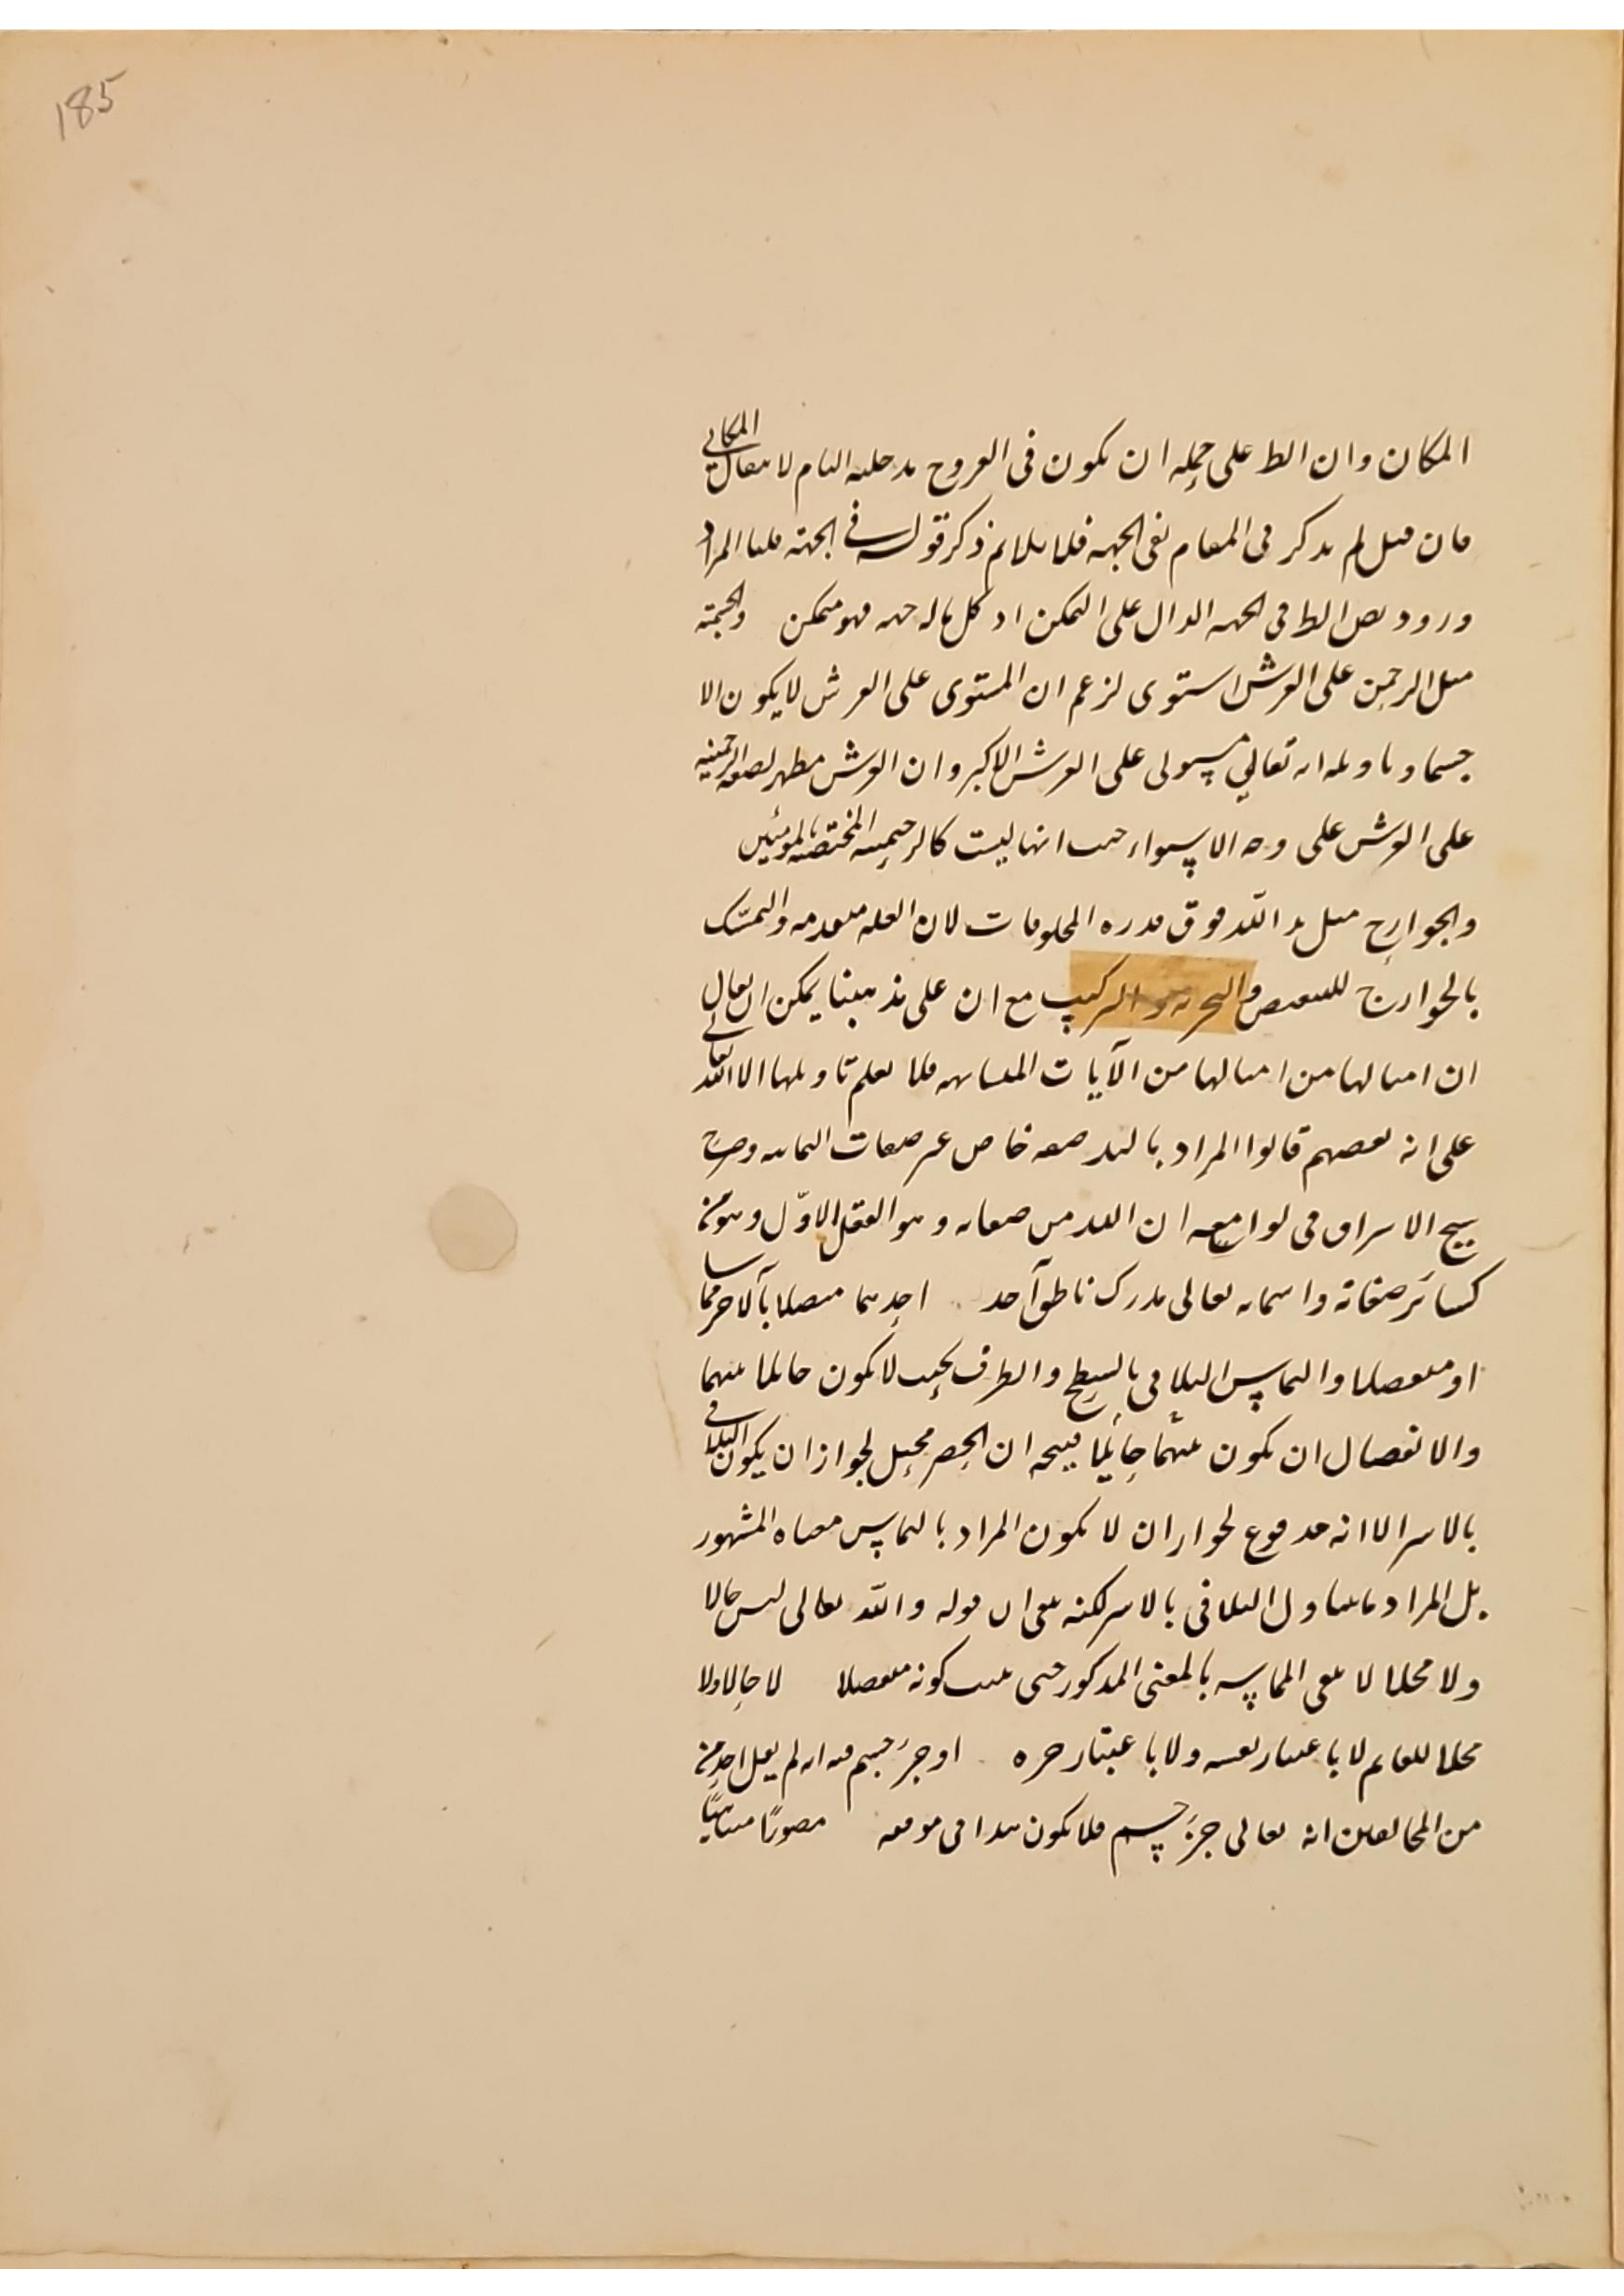 185
المكان وان الظ على حمله ان يكون فى العروج مدخلية التام لا يقال المكانى
فان قيل لم يذكر فى المقام نفى الجهه فلا يلايم ذكر قوله فى الجهة قلنا المراد
ورود نص الظ فى الجهه الدال على التمكن اذ كل ما له جهه فهو متمكن
مثل الرحمن على العرش استوى لزعم ان المستوى على العرش لا يكون الا
جسما وتاويله انه تعالي مستولى على العرش الاكبر وان العرش مظهر لصفة الرحمنيه
على العرش على وجه الاستواء حيث انها ليست كالرحيميه المختصه بالمومنين
والجوارح مثل يد الله فوق قدره المخلوقات لان العله متقدمه والتمسّك
بالجوارح للتبعيض والتجزيه والتركيب مع ان على مذهبنا يمكن ان يقال
ان امثالها من امثالها من الآيات المتشابهه فلا يعلم تاويلها الا الله تعالى
على انه بعضهم قالوا المراد باليد صفه خاص غير صفات الثمانيه وصرح
شيخ الاشراق فى لوامعه ان اليد من صفاته وهو العقل الاوّل وهو
كسائر صفاته واسمائه تعالى مدرك ناطق احدهما متصلا بآلاخر مماسا
او منفصلا والتماس التلاقى بالسطح والطرف بحيث لا يكون حائلا بينهما
والانفصال ان يكون بينهما حائلا يتجه ان الحصر مختل لجواز ان يكون التلاقى
بالاسر الا انه مدفوع لجواز ان لا يكون المراد بالتماس معناه المشهور
بل المراد ما يتناول التلاقى بالاسر لكنه بقى ان قوله والله تعالى ليس حالا
ولا محلا لا ينفى المماسه بالمعنى المذكور حتى يثبت كونه منفصلا لا حالا ولا
محلا للعالم لا باعتبار نفسه ولا باعتبار جزءه او جزء جسم فيه انه لم يقل احد
من المخالفين انه تعالى جزء جسم فلا يكون هذا فى موقعه مصورًا متناهيًا